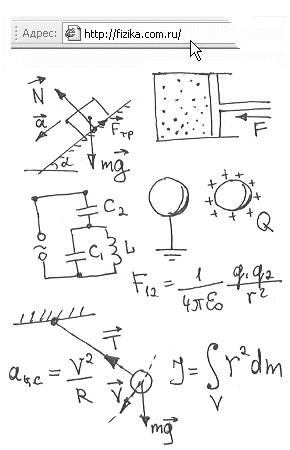 Адрес: http://fizika.com.ru/
N
a
Fтр
α
mg
F
C₂
C₁ L
+ + + + + + + + +
Q
F₁₂ = 1/4πε₀ q₁q₂/r²
T
aц.с = V²/R
V
J = ∫V r² dm
mg